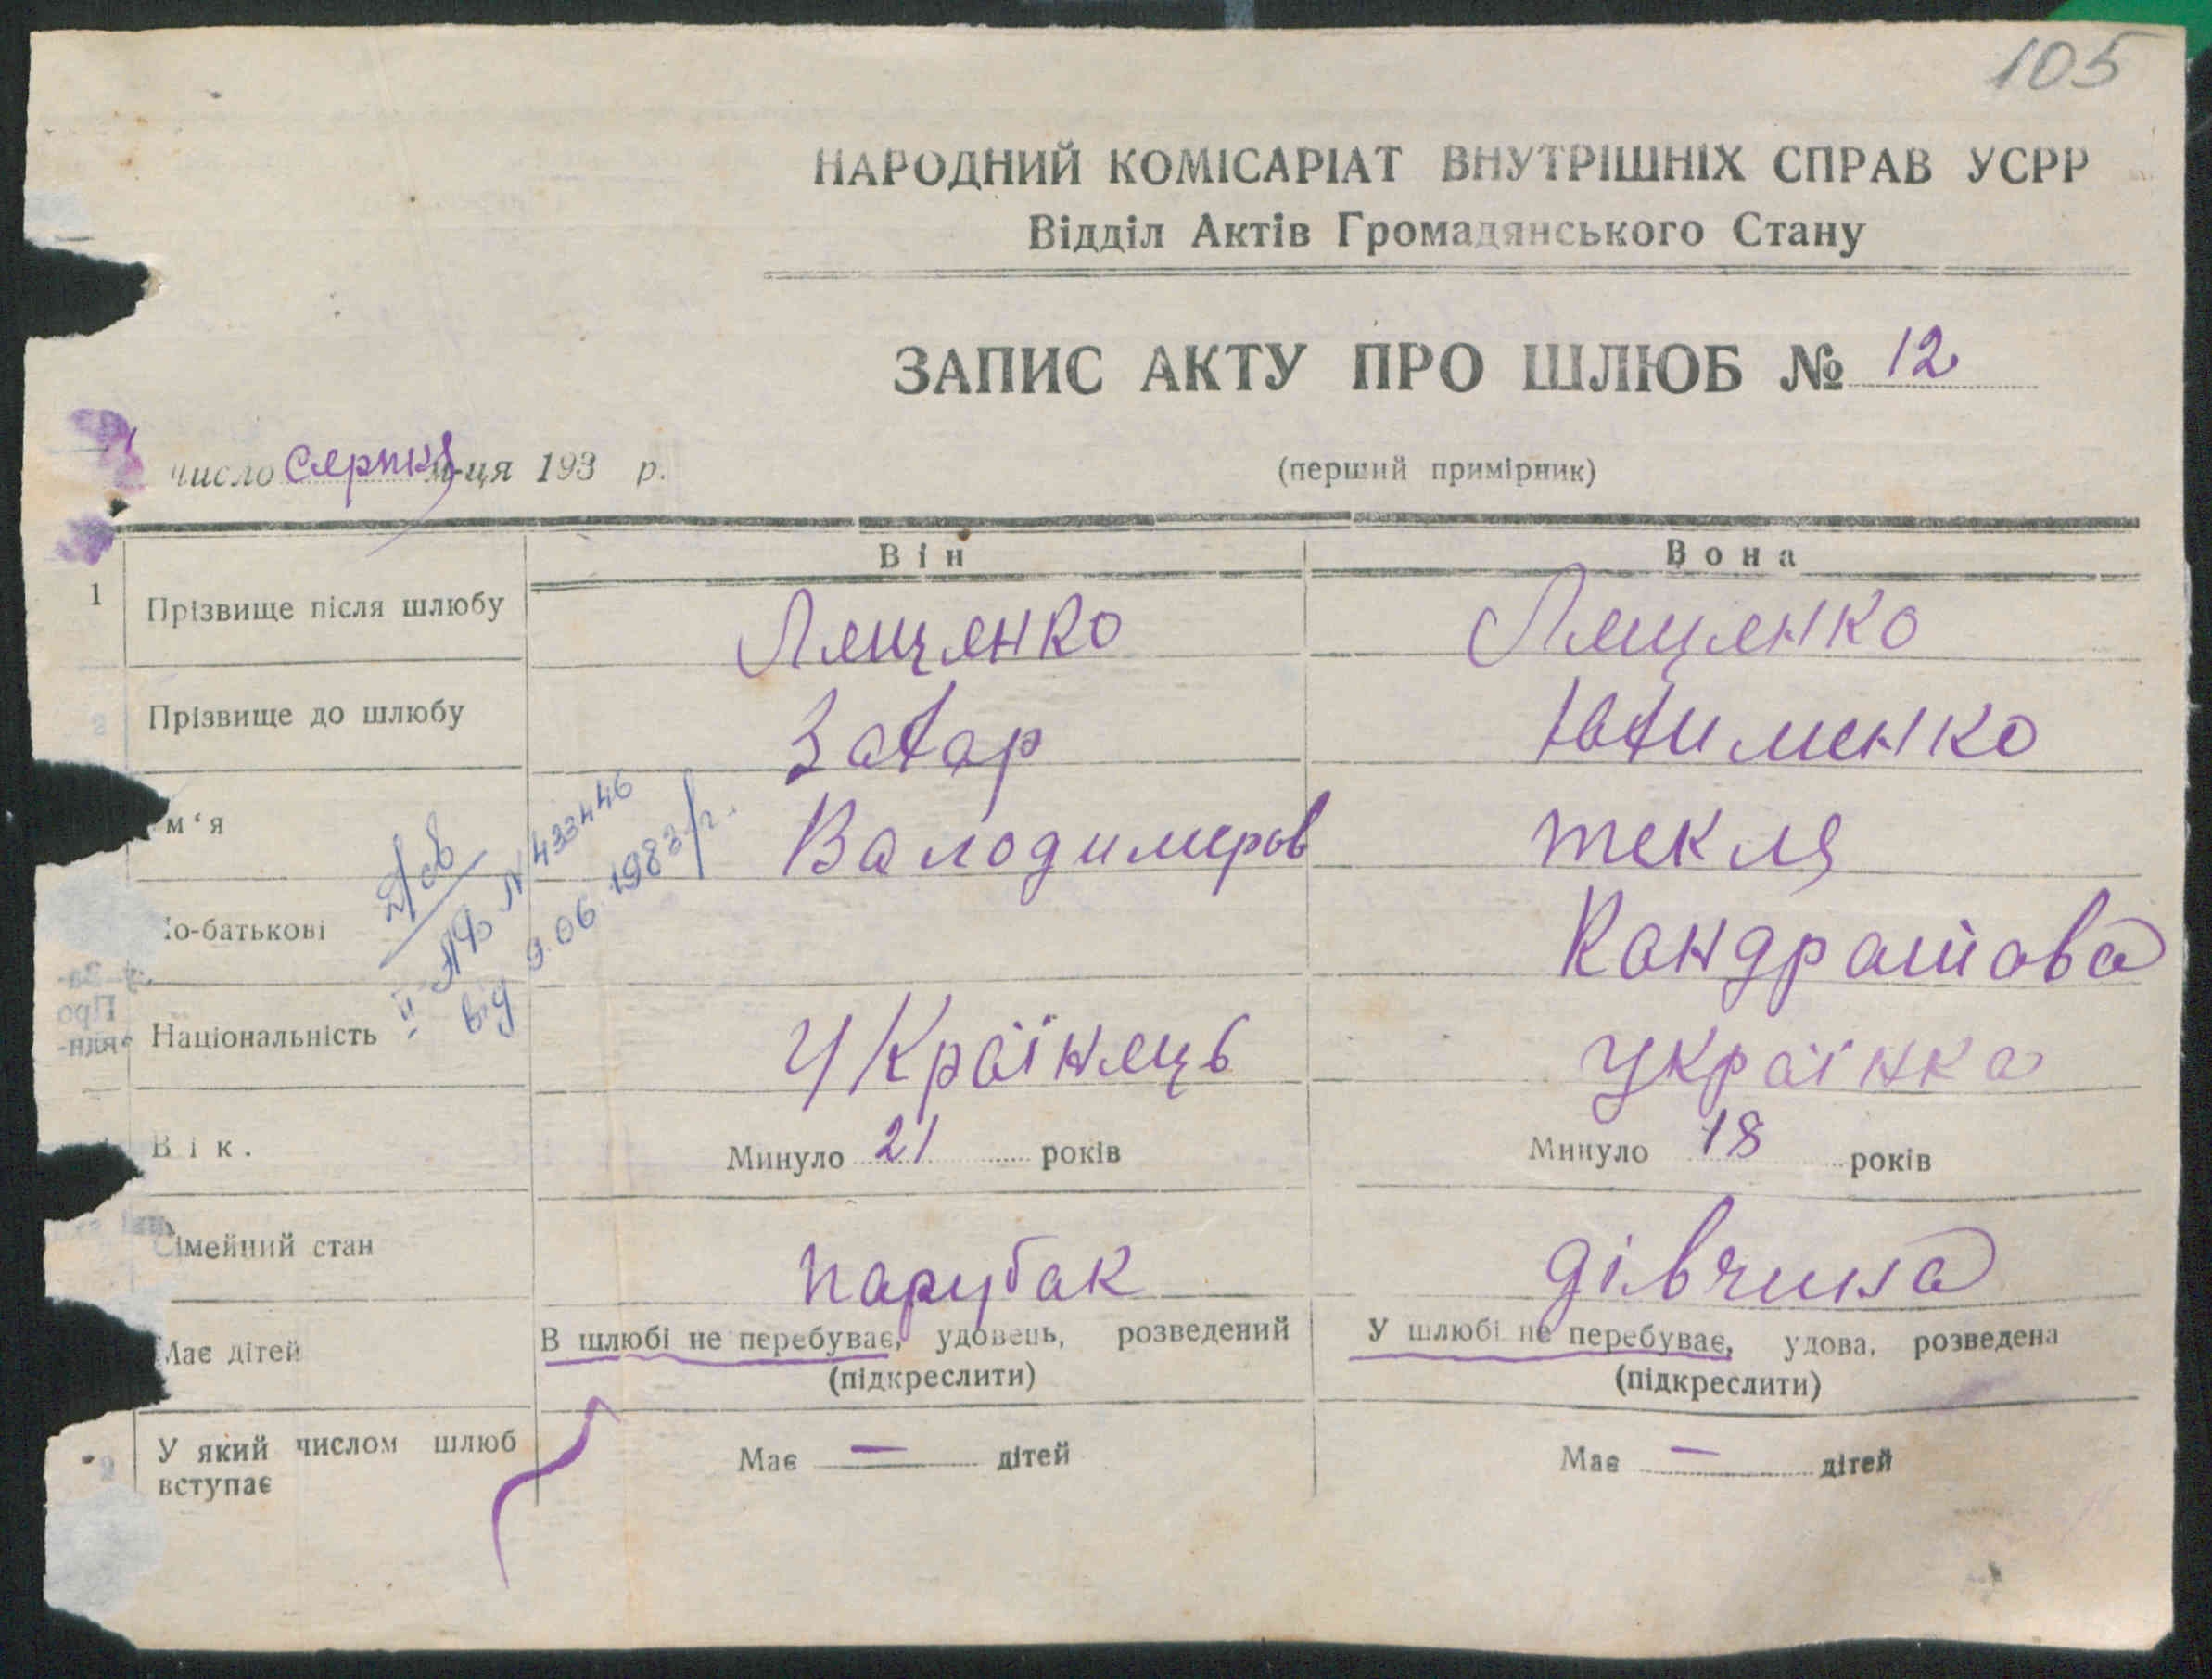 105
НАРОДНИЙ КОМІСАРІАТ ВНУТРІШНІХ СПРАВ УСРР
Відділ Актів Громадянського Стану
ЗАПИС АКТУ ПРО ШЛЮБ № 12
число Серпня м-ця 193 р.
(перший примірник)
Він Вона
1 Прізвище після шлюбу Лященко Лященко
Прізвище до шлюбу Захар Юхименко
м‘я Валодимеров текля
о-батькові Кандратова
Дов
ІІ АЮ № 433446
від 9.06.1983 г.
Національність Українець українка
Вік. Минуло 21 років Минуло 18 років
імейний стан парубак дівчина
Має дітей В шлюбі не перебуває, удовець, розведений У шлюбі не перебуває, удова, розведена
(підкреслити) (підкреслити)
У який числом шлюб вступає Має — дітей Має — дітей